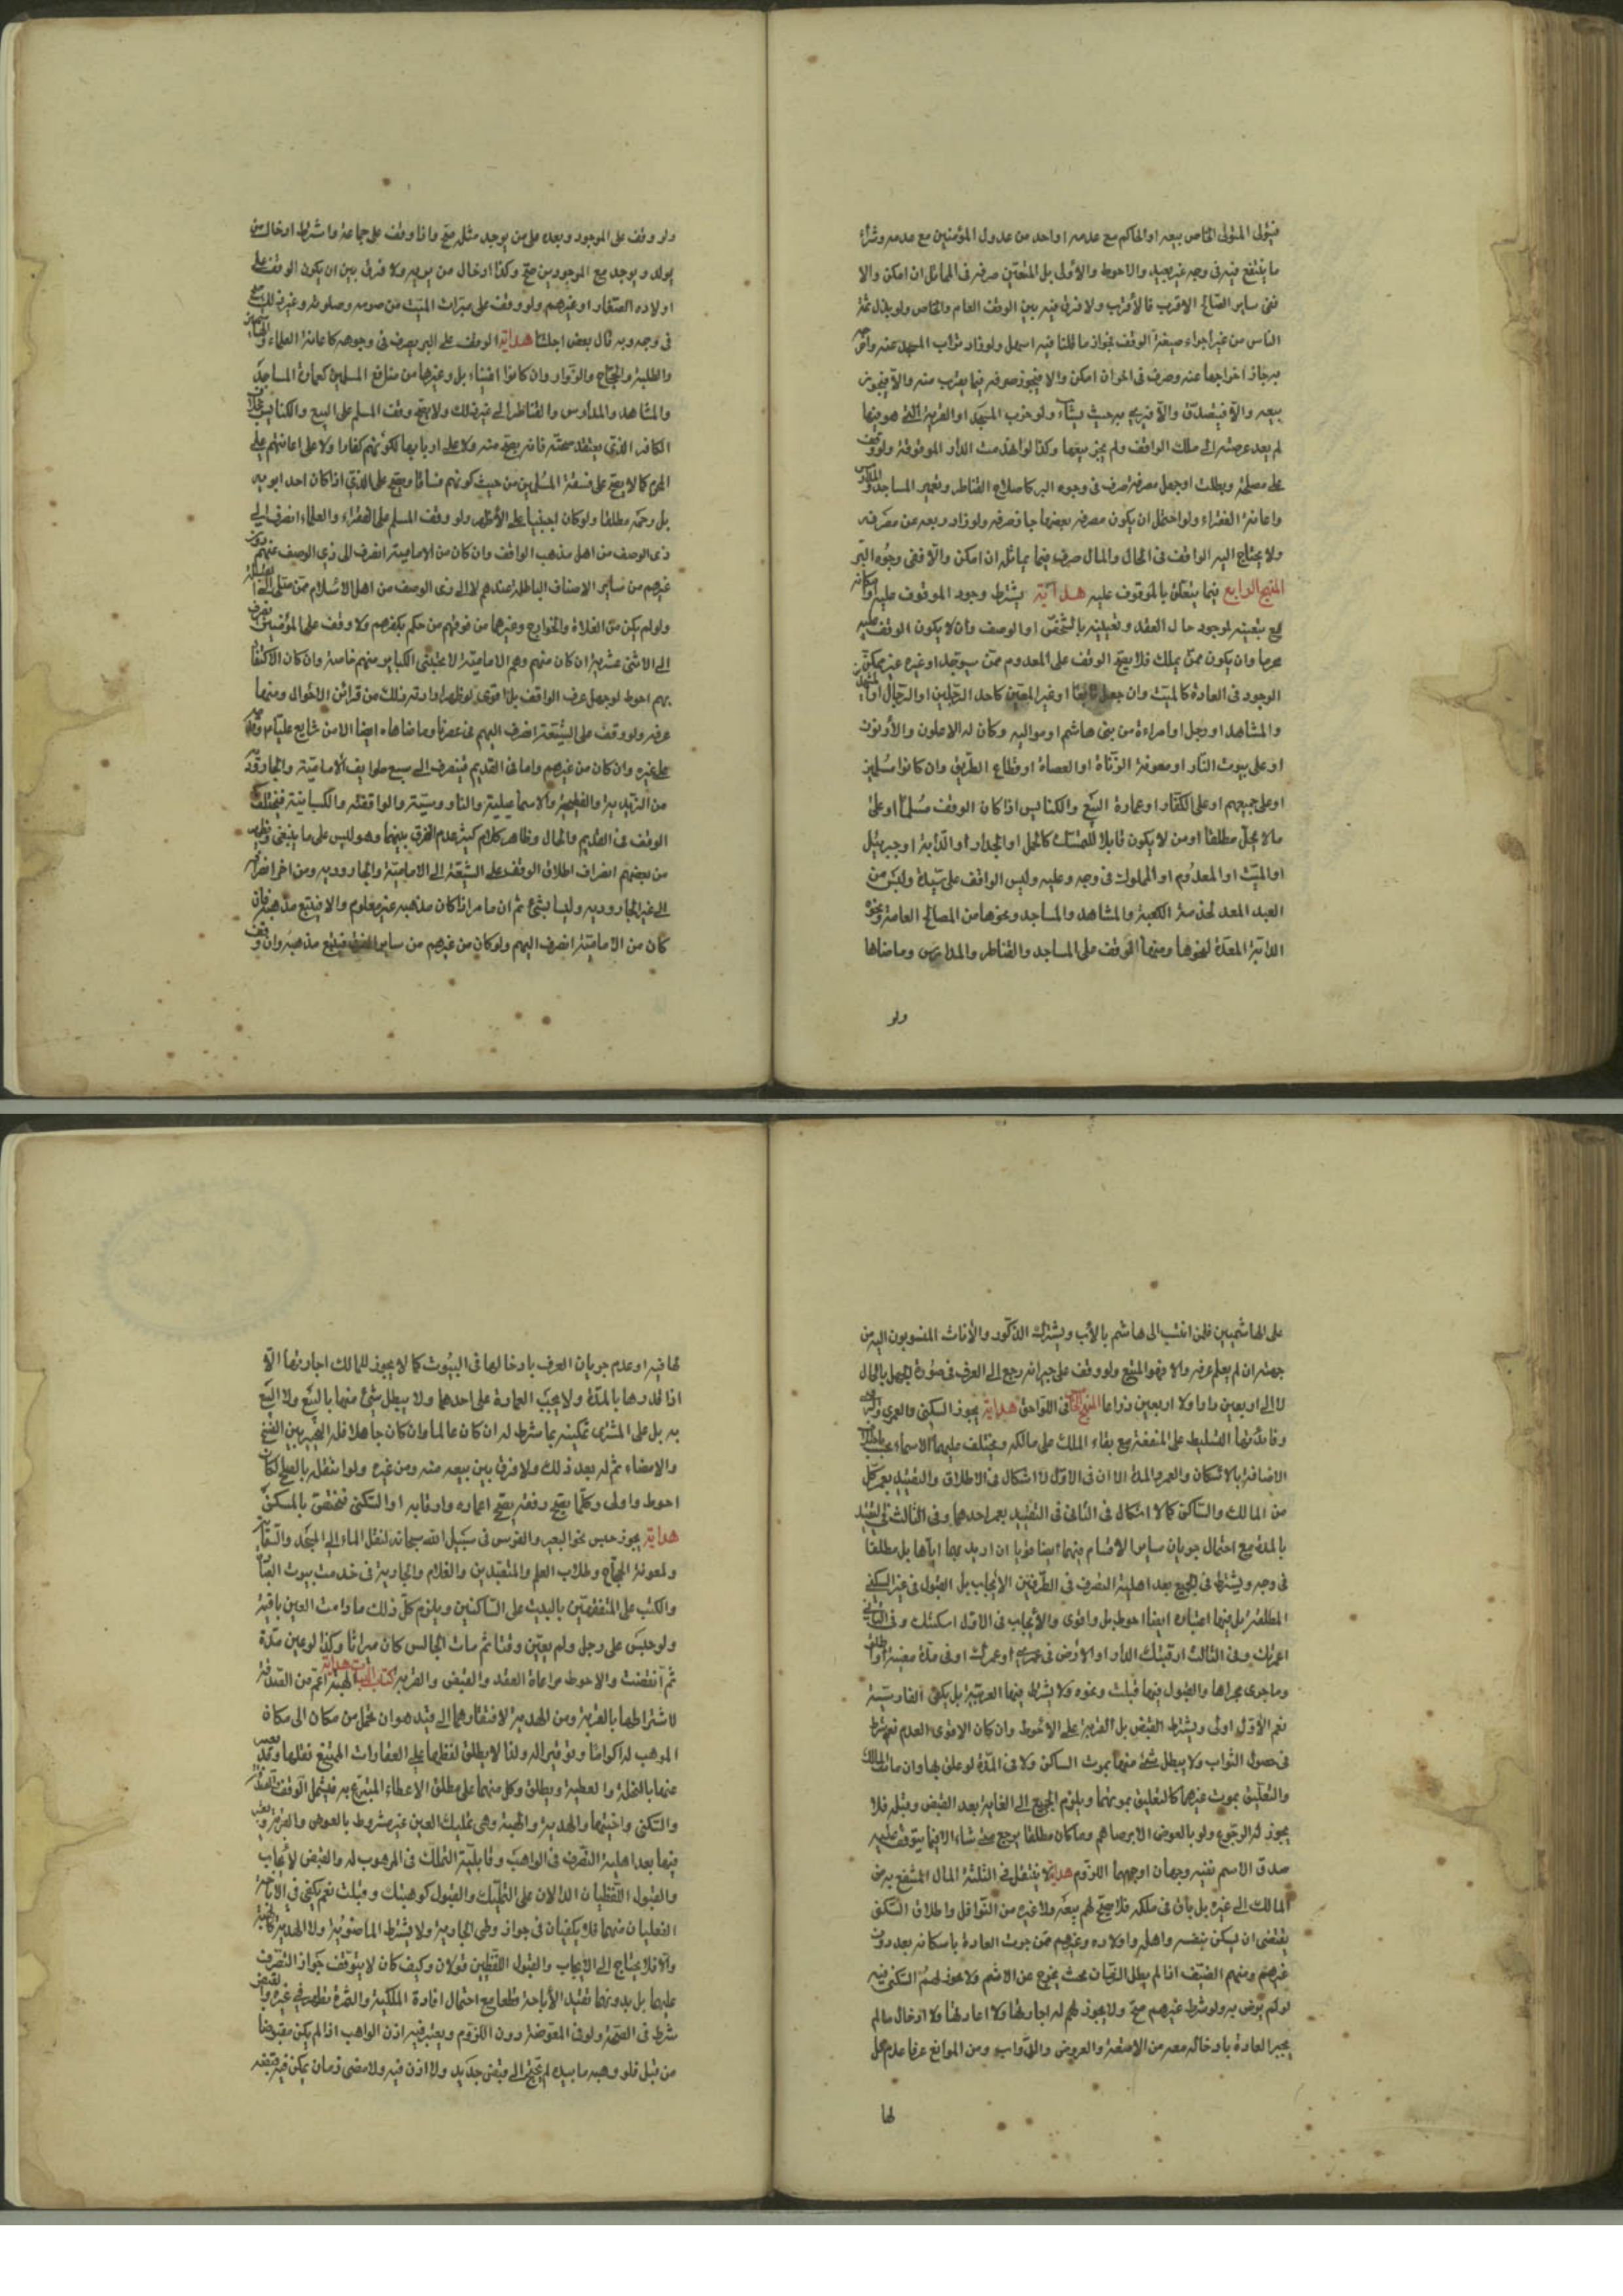 فيتولى المتولى الخاص بيعه او الحاكم مع عدمه او احد من عدول المؤمنين مع عدمه وشراء
ما ينتفع فيه فى وجه غير بعيد والاحوط والأولى بل المتعين صرفه فى المماثل ان امكن والا
ففى ساير المصالح الاقرب فالأقرب ولا فرق فيه بين الوقف العام والخاص ولو بذل ثمنه
الناس من غير اجراء صيغة الوقف فجواز ما قلنا فيه اسهل ولو زاد تراب المسجد عنه واضر
به جاز اخراجها عنه وصرف فى اخر ان امكن والا فيجوز صرفه فيما يقرب منه والا فيجوز
بيعه والا فيتصدق والا فيرجع به حيث يشاء ولو خرب المسجد او القرية التى هو فيها
لم يعد عرصته الى ملك الواقف ولم يجز بيعها وكذا لو انهدمت الدار الموقوفة ولو وقف
على مصلحة وبطلت او جهل مصرفه صرف فى وجوه البر كاصلاح القناطر وتعمير المساجد والمدارس
واعانة الفقراء ولو احتمل ان يكون مصرفه بعضها جاز صرفه ولو زاد ريعه عن مصرفه
ولا يحتاج اليه الواقف فى الحال والمال صرف فيما يماثله ان امكن والا ففى وجوه البر
المنهج الرابع فيما يتعلق بالموقوف عليه هداية يشترط وجود الموقوف عليه وامكانه
مع تبعيته لموجود حال العقد وتعيينه بالشخص او الوصف وان لا يكون الوقف عليه
محرما وان يكون ممن يملك فلا يصح الوقف على المعدوم ممن سيوجد او غيره غير ممكن
الوجود فى العادة كالميت وان جعل تابعا او غير المعين كاحد الرجلين او الرجال او احد المشهدين
والمشاهد او رجل او امراءة من بنى هاشم او مواليه وكان له الاعلون والأدنون
او على بيوت النار او معونة الزناة او العصاة او قطاع الطريق وان كانوا مسلمين
او على جميعهم او على الكفار او عمارة البيع والكنايس اذا كان الوقف مسلما او على
ما لا يحل مطلقا او من لا يكون قابلا للتملك كالحمل او الجدار او الدابة او جبرئيل
او الميت او المعدوم او المملوك فى وجه وعليه وليس الواقف على سيده وليس من
العبد المعد لخدمة الكعبة والمشاهد والمساجد ونحوها من المصالح العامة ونحوه
الدابة المعدة لنحوها ومنها الوقف على المساجد والقناطر والمدارس وما ضاهاها
ولو
ولو وقف على الموجود وبعده على من يوجد مثله صح واذا وقف على جماعة واشرط ادخال من
يولد ويوجد مع الموجودين صح وكذا ادخال من يريد ولا فرق بين ان يكون الوقف على
اولاده الصغار او غيرهم ولو وقف على ميراث الميت من صومه وصلوته وغير ذلك صح
فى وجه وبه قال بعض اجلتنا هداية الوقف على البر يصرف فى وجوهه كاعانة العلماء
والطلبة والحجاج والزوار وان كانوا اغنياء بل وغيرها من منافع المسلمين كعمارة المساجد
والمشاهد والمدارس والقناطر الى غير ذلك ولا يصح وقف المسلم على البيع والكنايس بخلاف
الكافر الذى يعتقد صحته فانه يصح منه ولا على اربابها لكونهم كفارا ولا على اعانتهم على
المحرم كما لا يصح على فسقة المسلمين من حيث كونهم فساقا ويصح على الذمى اذا كان احد ابويه
بل رحمه مطلقا ولو كان اجنبيا على الأظهر ولو وقف المسلم على الفقراء والعلماء انصرف الى
ذى الوصف من اهل مذهب الواقف وان كان من الامامية انصرف الى ذى الوصف منهم دون
غيرهم من ساير الاصناف الباطلة عندهم لا الى ذى الوصف من اهل الاسلام ممن صلى الى القبلة
ولو لم يكن من الغلاة والخوارج وغيرها من فرقهم من حكم بكفرهم ولا وقف على المؤمنين
الى الاثنى عشرية ان كان منهم وهم الامامية لا مجتنبى الكباير منهم خاصة وان كان الاكتفاء
بهم احوط لو جهل عرف الواقف
عرفه ولو وقف على الشيعة انصرف اليهم فى عصرنا وما ضاهاه ايضا الا من شايع عليا وقدمه
على غيره وان كان من غيرهم واما فى القديم فينصرف الى سبع طوايف الامامية والجارودية
من الزيدية والفطحية والاسماعيلية والناووسية والواقفة والكيسانية فيختلف
الوقف فى القديم والحال وظاهر كلام كثير عدم الفرق بينهما وهو ليس على ما ينبغى
من بعضهم انصراف اطلاق الوقف على الشيعة الى الامامية والجارودية ومن اخر انصرافه
الى غير الجارودية وليسا بشئ ثم ان ما مر اذا كان مذهبه غير معلوم والا فيتبع مذهبه فان
كان من الامامية انصرف اليهم ولو كان من غيرهم من ساير الفرق فيتبع مذهبه وان وقف
على الهاشميين فلمن انتسب الى هاشم بالأب ويشترك الذكور والأناث المنسوبون اليه من
جهته ان لم يعلم عرفه والا فهو المتبع ولو وقف على جيرانه رجع الى العرف فى صورة الجهل بالحال
لا الى اربعين دارا ولا اربعين ذراعا المنهج فى اللواحق هداية يجوز السكنى والعمرى والرقبى
وفائدتها التسليط على المنفعة مع بقاء الملك على مالكه ويختلف عليها الاسماء بحسب اختلاف
الاضافة بالاسكان والعمر والمدة الا ان فى الاول لا اشكال فى الاطلاق والتقييد بعمر كل
من المالك والساكن كما لا اشكال فى الثانى فى التقييد بعمر احدهما وفى الثالث فى التقييد
بالمدة مع احتمال جريان ساير الاقسام فيهما ايضا قويا ان اريد بهما اياها بل مطلقا
فى وجه ويشترط فى الجميع بعد اهلية التصرف فى الطرفين الأيجاب بل القبول فى غير السكنى
المطلقة بل فيها اعتباره ايضا احوط بل واقوى والأيجاب فى الاول اسكنتك وفى الثانى
اعمرتك وفى الثالث ارقبتك الدار او الارض فى عمرى او عمرك او فى مدة معينة او مطلقا
وما جرى مجراها والقبول فيها قبلت ونحوه ولا يشترط فيها العربية بل يكفى الفارسية
نعم الأول اولى ويشترط القبض بل القربة على الاحوط وان كان الاقوى العدم نعم يشترط
فى حصول الثواب ولا يبطل شئ منها بموت الساكن ولا فى المدة لو علق بها وان مات المالك
والتعليق بموت غيرهما كالتعليق بموتهما ويلزم الجميع الى الغاية بعد القبض وقبله فلا
يجوز له الرجوع ولو بالعوض الا برضاهم وما كان مطلقا يرجع متى شاء الا فيما يتوقف عليه
صدق الاسم ففيه وجهان اوجههما اللزوم هداية لا ينتقل فى الثلثة المال المنتفع به من
المالك الى غيره بل باق فى ملكه فلا يصح لهم بيعه ولا غيره من النواقل واطلاق السكنى
يقتضى ان يسكن بنفسه واهله واولاده وغيرهم ممن جرت العادة باسكانه بعد دون
غيرهم ومنهم الضيف اذا لم يطل الزمان بحيث يخرج عن الاسم ولا يجوز لهم السكنى فيه
لو لم يرض به ولو شرط غيرهم صح ولا يجوز لهم له اجارتها ولا اعارتها ولا ادخال ما لم
يجر العادة بادخاله معه من الامتعة والعروض والدواب ومن الموانع عرفا عدم محل
لها
لها فيه او عدم جريان العرف بادخالها فى البيوت كما لا يجوز للمالك اجارتها الا
اذا قدرها بالمدة ولا يجب العمارة على احدهما ولا يبطل شئ منها بالبيع ولا البيع
به بل على المشترى تمكينه بما شرط له ان كان عالما وان كان جاهلا فله الخيار بين الفسخ
والامضاء ثم له بعد ذلك ولا فرق بين بيعه منه ومن غيره ولو انتقل بالصلح لكان
احوط واولى وكلما يصح وقفه يصح اعماره وارقابه او السكنى فتختص بالمسكن
هداية يجوز حبس نحو البعير والفرس فى سبيل الله سبحانه لنقل الماء الى المسجد والسقاية
ولمعونة الحجاج وطلاب العلم والمتعبدين والغلام والجارية فى خدمة بيوت العبادة
والكتب على المتفقهين والبيت على الساكنين ويلزم كل ذلك ما دامت العين باقية
ولو حبس على رجل ولم يعين وقتا ثم مات الحابس كان ميراثا وكذا لو عين مدة
ثم انقضت والاحوط مراعاة العقد والقبض والقربة كتاب الهبات هداية الهبة اعم من الصدقة
لاشتراطها بالقربة ومن الهدية لافتقارها الى قيد هو ان تحمل من مكان الى مكان
الموهب له اكراما وتوقيرا له ولذا لا يطلق لفظها على العقارات الممتنع نقلها وقد يعبر
عنها بالنحلة والعطية ويطلق وكل منهما على مطلق الاعطاء المتبرع به فيشمل الوقف والصدقة
والسكنى واختيها والهدية والهبة وهى تمليك العين غير مشروط بالعوض والقربة ويعتبر
فيها بعد اهلية التصرف فى الواهب وقابلية التملك فى الموهوب له والقبض الأيجاب
والقبول اللفظيان الدالان على التمليك والقبول كوهبتك وقبلت نعم يكفى فى الأباحة
الفعليان منهما فلا يكفيان فى جواز وطى الجارية ولا يشترط الماضوية ولا الهدية كالهبة
والا فلا يحتاج الى الأيجاب والقبول اللفظين قولان وكيف كان لا يتوقف جواز التصرف
عليها بل بدونها تفيد الأباحة قطعا مع احتمال افادة الملكية والثمرة تظهر فى غيره والقبض
شرط فى الصحة ولو فى المعوضة دون اللزوم ويعتبر فيه اذن الواهب اذا لم يكن مقبوضا
من قبل فلو وهبه ما بيده لم يحتج الى قبض جديد ولا اذن فيه ولا مضى زمان يمكن فيه قبضه